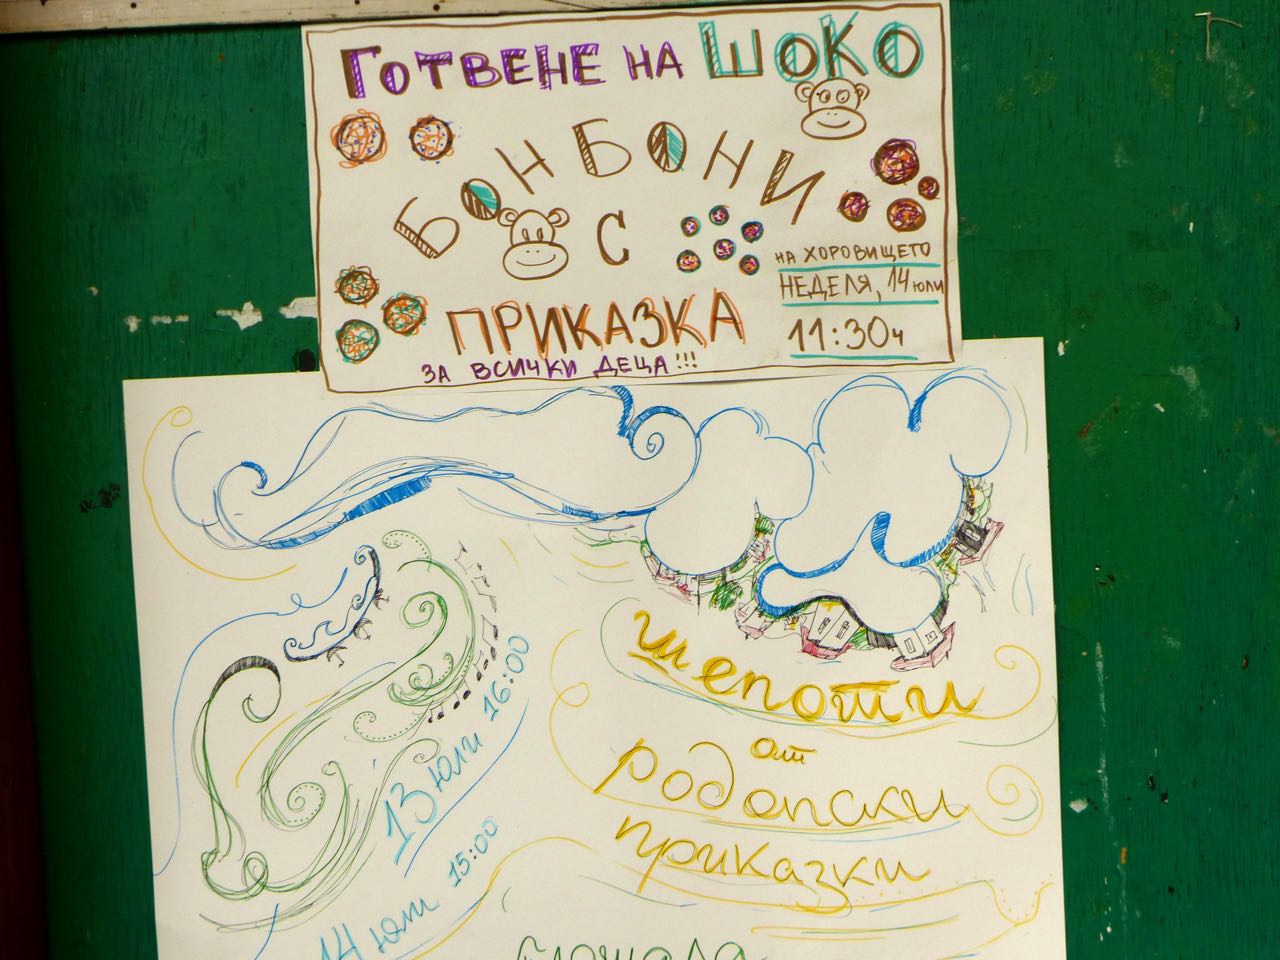 ГОТВЕНЕ НА ШОКО
БОНБОНИ
С
ПРИКАЗКА
ЗА ВСИЧКИ ДЕЦА!!!
НА ХОРОВИЩЕТО
НЕДЕЛЯ, 14 юли
11:30ч
шепоти
от
родопски
приказки
13 юли 16:00
14 юли 15:00